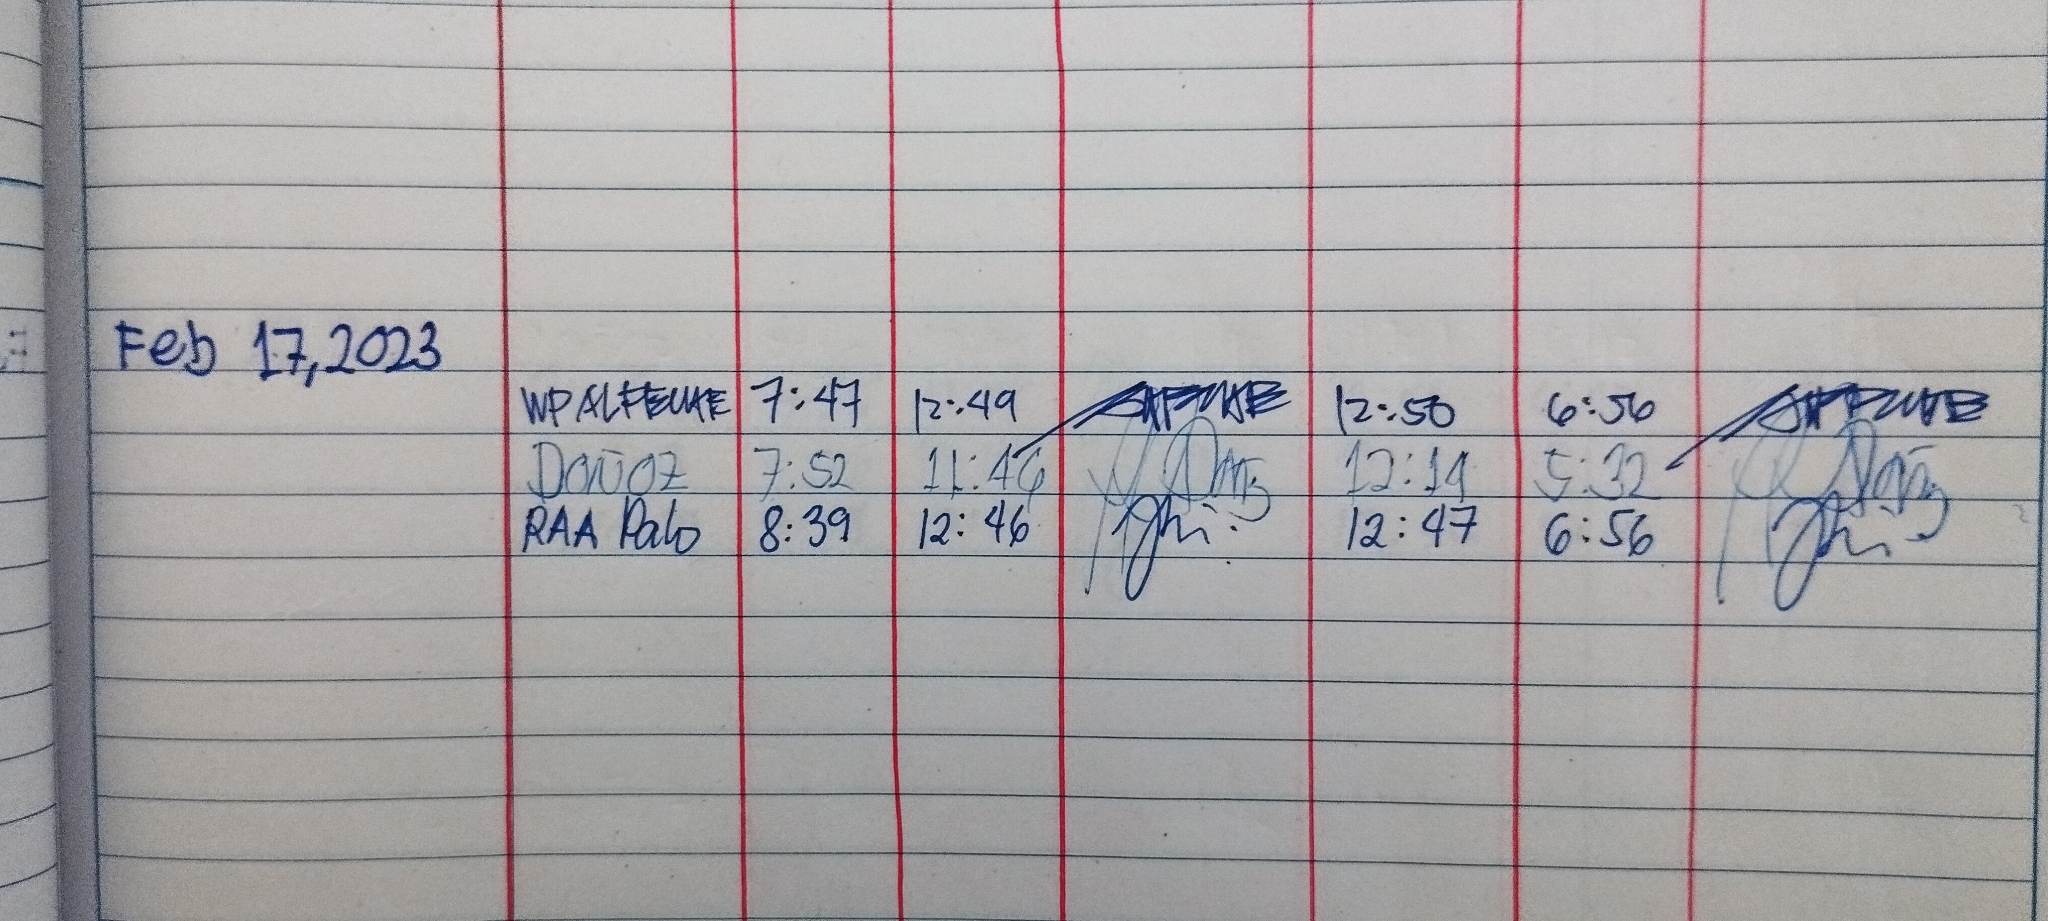 Feb 17, 2023
WPALFELIAE 7:47 12:49 12:50 6:56
Doñoz 7:52 11:46 12:19 5:32
RAA Palo 8:39 12:46 12:47 6:56